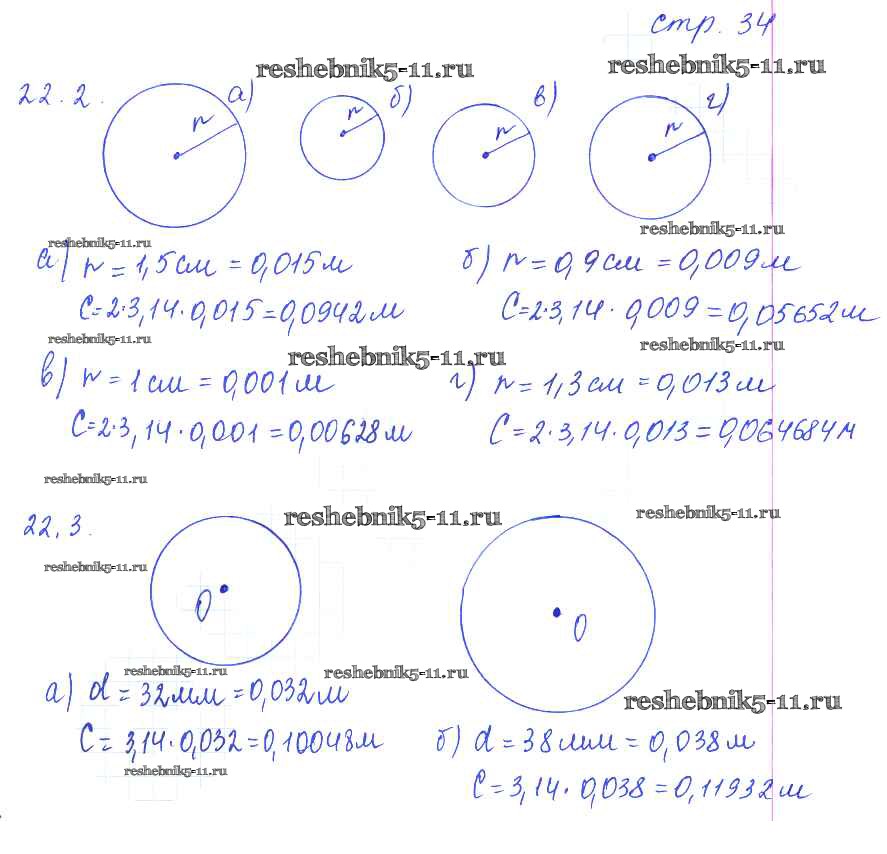 стр. 34
reshebnik5-11.ru
reshebnik5-11.ru
22.2.
а)
б)
в)
г)
r
r
r
r
reshebnik5-11.ru
reshebnik5-11.ru
а) r = 1,5 см = 0,015 м
б) r = 0,9 см = 0,009 м
C = 2·3,14·0,015 = 0,0942 м
C = 2·3,14·0,009 = 0,05652 м
reshebnik5-11.ru
reshebnik5-11.ru
reshebnik5-11.ru
в) r = 1 см = 0,001 м
г) r = 1,3 см = 0,013 м
C = 2·3,14·0,001 = 0,00628 м
C = 2·3,14·0,013 = 0,064684 м
reshebnik5-11.ru
reshebnik5-11.ru
reshebnik5-11.ru
22.3.
reshebnik5-11.ru
O
O
reshebnik5-11.ru
reshebnik5-11.ru
а) d = 32 мм = 0,032 м
reshebnik5-11.ru
C = 3,14·0,032 = 0,10048 м
б) d = 38 мм = 0,038 м
reshebnik5-11.ru
C = 3,14·0,038 = 0,11932 м